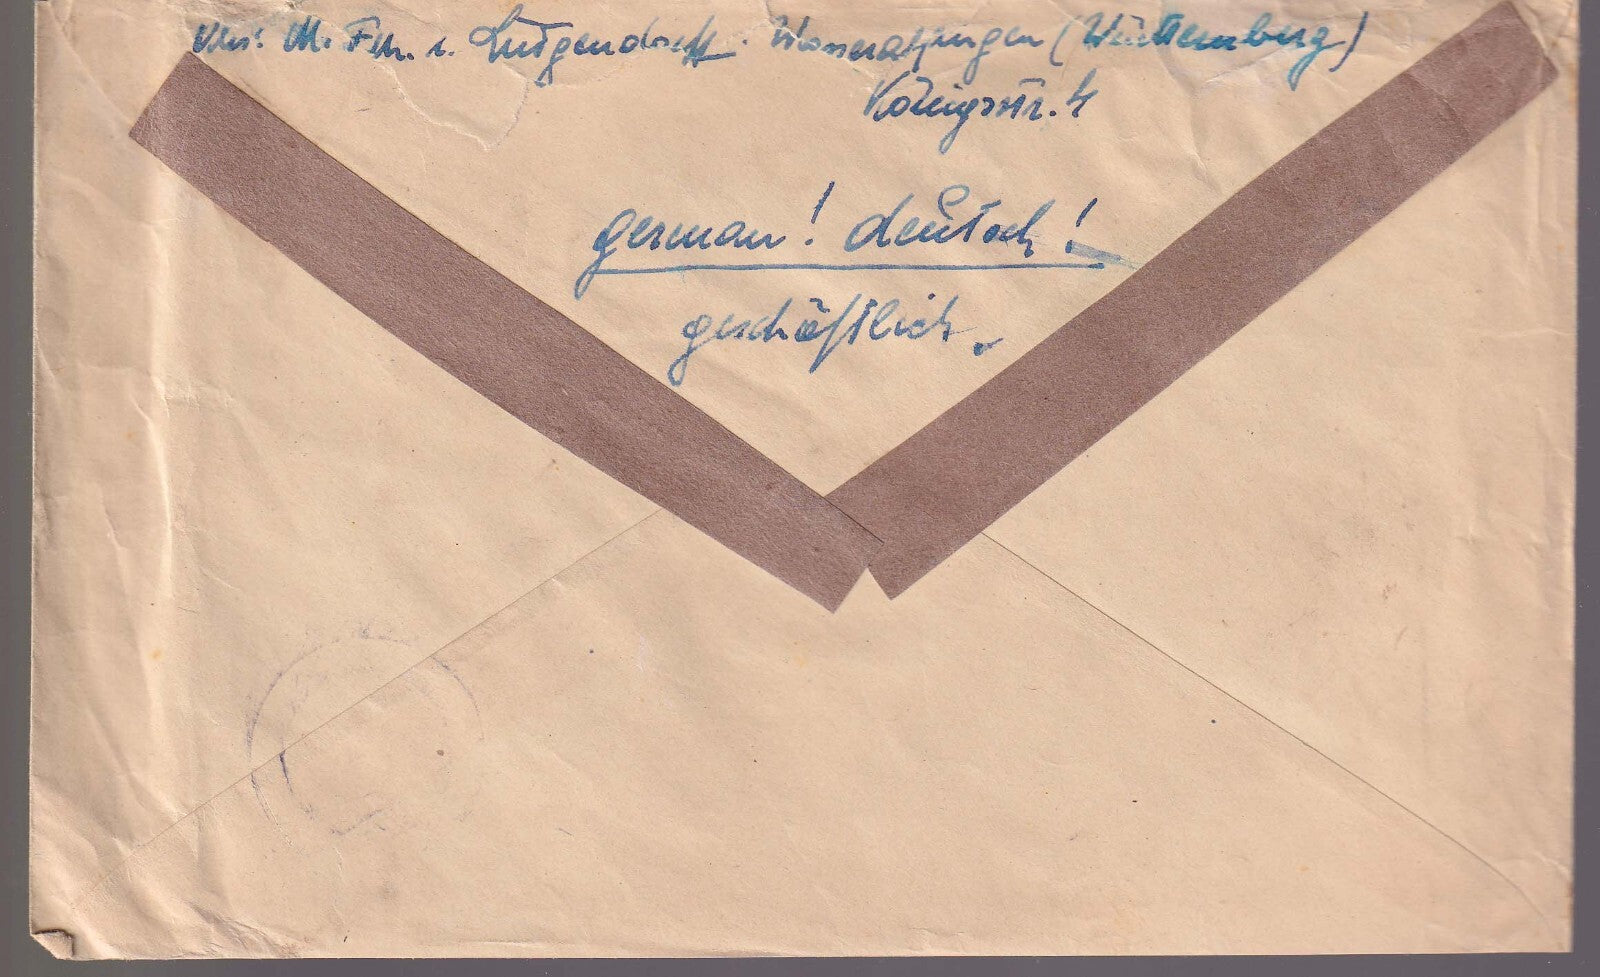 Abs: M. Frh. v. Lütgendorff. Wasseralfingen (Württemberg)
Königstr. 4
german! deutsch!
geschäftlich.